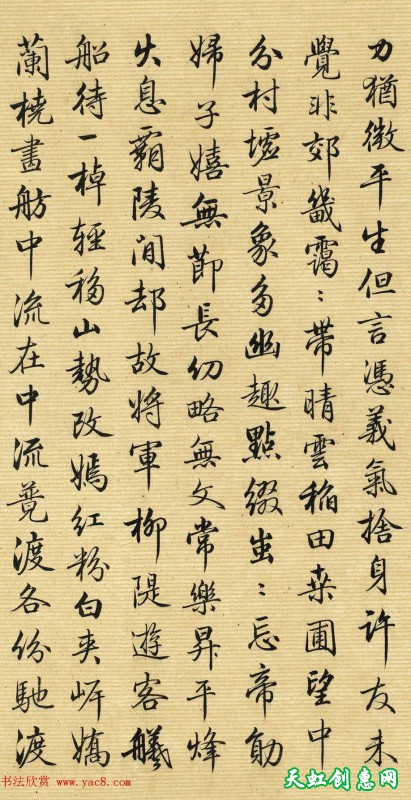 力猶微平生但言憑義氣捨身許友未
覺非郊畿靄:帶晴雲稻田桒圃望中
分村墟景象多幽趣點綴蚩:忘帝勛
婦子嬉無節長幼略無文常樂昇平烽
火息霸陵閒却故將軍柳隄遊客艤
船待一棹輕移山勢改嫣紅粉白夾岸嬌
蘭橈畫舫中流在中流競渡各份馳渡
书法欣赏 www.yac8.com
天虹创惠网